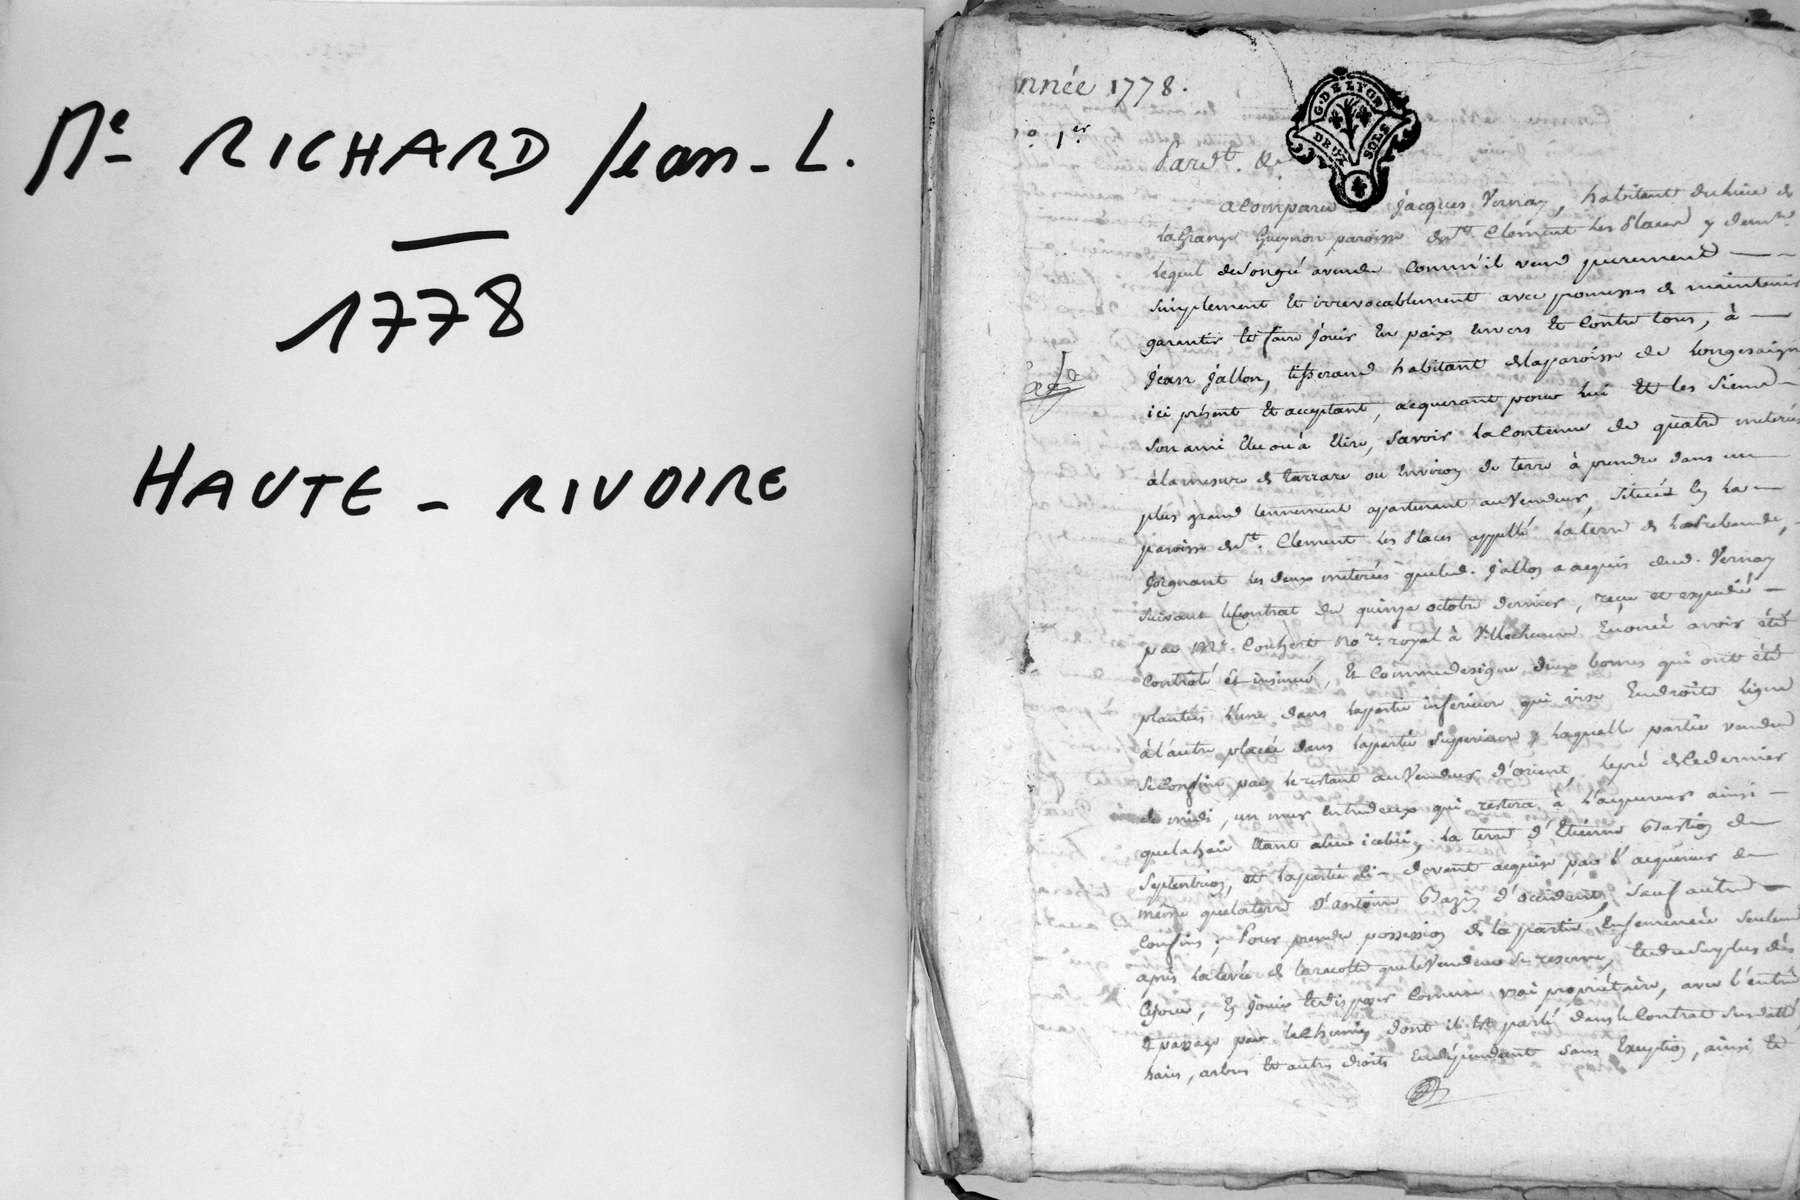 Me RICHARD Jean-L.
1778
HAUTE-RIVOIRE
nnée 1778.
o. 1er
Pardt. &a
G. DE LYON
DEUX SOLS
a Comparu Jacques Vernay, habitant du lieu de
la Grange Gueynon paroisse de St. Clement les Places y demt.
lequel de son gré a vendu comm'il vend purement
simplement et irrevocablement avec promesses de maintenir
garantir et faire jouir en paix envers et contre tous, à
Jean Jallon, tisserand habitant de la paroisse de Longesaigne
ici présent et acceptant, acquerant pour lui et les siens
son ami élu ou à élire, savoir la Contenue de quatre meterées
à la mesure de tarrare ou environ de terre à prendre dans un
plus grand tennement apartenant au Vendeur, située en la
paroisse de St. Clement les Places appellé la terre de
joignant les deux meterées que led. Jallon a acquis dud. Vernay
suivant le Contrat du quinze octobre dernier, reçu et expedié
par Me. Conhert Nore. royal à Villechenève Enoncé avoir été
Contrôlé et insinué, et Comme designe deux bornes qui ont été
plantées l'une dans la partie inferieure qui vise En droite ligne
à l'autre placée dans la partie superieure, laquelle partie vendue
se Confine par le restant au Vendeur d'orient, le pré de ce dernier
de midi, un mur entredeux qui restera à l'acquereur ainsi
que la haie étant au icelui, la terre d'Etienne de
septentrion, et la partie ci-devant acquise par l'acquereur de
même que la terre d'antoine d'occident, sauf autres
Confins; Pour prendre possession de la partie Ensemencée seulement
après la levée de la recolte que le Vendeur se reserve, et du surplus dès
ce jour, En jouir et disposer Comme vrai propriétaire, avec l'entrée
et passage par le chemin dont il est parlé dans le Contrat susdatté,
haies, arbres et autres droits En dépendant sans Exception, ainsi et